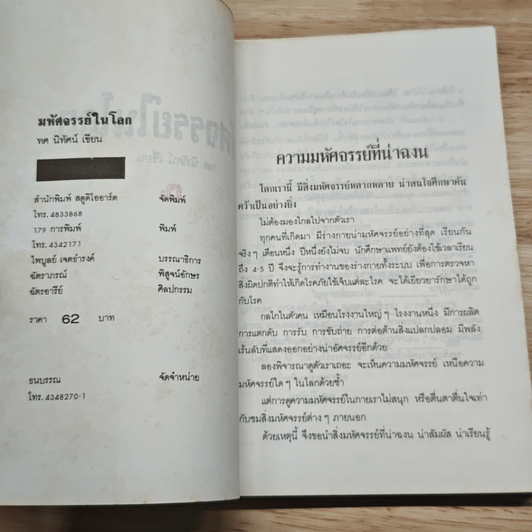 มหัศจรรย์ในโลก
ทศ นิทัศน์ เขียน
สำนักพิมพ์ สตูดิโออาร์ต จัดพิมพ์
โทร. 4833868
179 การพิมพ์ พิมพ์
โทร. 4342171
ไพบูลย์ เจตธำรงค์ บรรณาธิการ
ฉัตราภรณ์ พิสูจน์อักษร
ฉัตรอารีย์ ศิลปกรรม
ราคา 62 บาท
ธนบรรณ จัดจำหน่าย
โทร. 4348270-1
ความมหัศจรรย์ที่น่าฉงน
โลกเรานี้ มีสิ่งมหัศจรรย์หลากหลาย น่าสนใจศึกษาค้น
คว้าเป็นอย่างยิ่ง
ไม่ต้องมองไกลไปจากตัวเรา
ทุกคนที่เกิดมา มีร่างกายน่ามหัศจรรย์อย่างที่สุด เรียนกัน
จริงๆ เดือนหนึ่ง ปีหนึ่งยังไม่จบ นักศึกษาแพทย์ยังต้องใช้เวลาเรียน
ถึง 4-5 ปี จึงจะรู้การทำงานของร่างกายทั้งระบบ เพื่อการตรวจหา
สิ่งผิดปกติทำให้เกิดโรคภัยไข้เจ็บแต่ละโรค จะได้เยียวยารักษาได้ถูก
กับโรค
กลไกในตัวคน เหมือนโรงงานใหญ่ๆ โรงงานหนึ่ง มีการผลิต
การแตกดับ การรับ การขับถ่าย การต่อต้านสิ่งแปลกปลอม มีพลัง
เร้นลับที่แสดงออกอย่างน่าอัศจรรย์อีกด้วย
ลองพิจารณาดูตัวเราเถอะ จะเห็นความมหัศจรรย์ เหนือความ
มหัศจรรย์ใดๆ ในโลกด้วยซ้ำ
แต่การดูความมหัศจรรย์ในกายเราไม่สนุก หรือตื่นตาตื่นใจเท่า
กับชมสิ่งมหัศจรรย์ต่างๆ ภายนอก
ด้วยเหตุนี้ จึงขอนำสิ่งมหัศจรรย์ที่น่าฉงน น่าสัมผัส น่าเรียนรู้